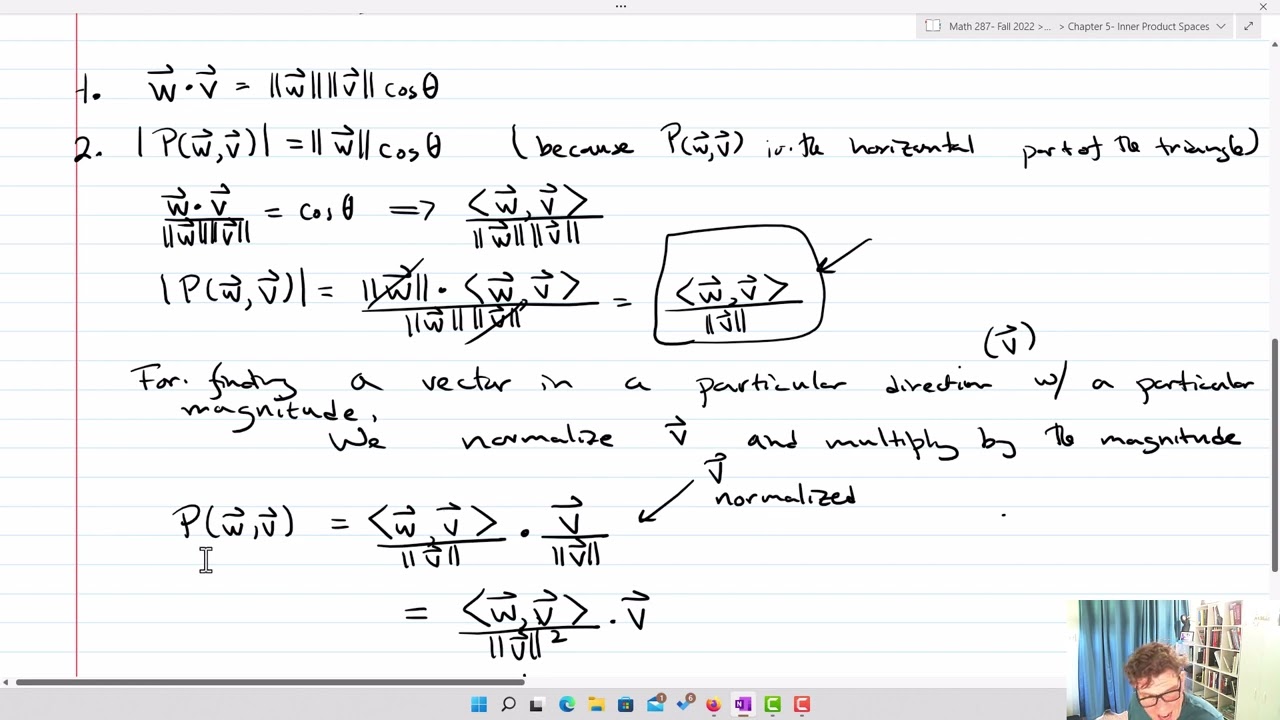 Math 287- Fall 2022 >... > Chapter 5- Inner Product Spaces
1. w⃗·v⃗ = ||w⃗|| ||v⃗|| cosθ
2. |P(w⃗,v⃗)| = ||w⃗|| cosθ (because P(w⃗,v⃗) is the horizontal part of the triangle)
w⃗·v⃗ / ||w⃗|| ||v⃗|| = cosθ ⇒ <w⃗,v⃗> / ||w⃗|| ||v⃗||
|P(w⃗,v⃗)| = ||w⃗||·<w⃗,v⃗> / ||w⃗|| ||v⃗|| = <w⃗,v⃗> / ||v⃗||
(v⃗)
For finding a vector in a particular direction w/ a particular
magnitude,
We normalize v⃗ and multiply by the magnitude
v⃗
normalized
P(w⃗,v⃗) = <w⃗,v⃗> / ||v⃗|| · v⃗ / ||v⃗||
= <w⃗,v⃗> / ||v⃗||² · v⃗